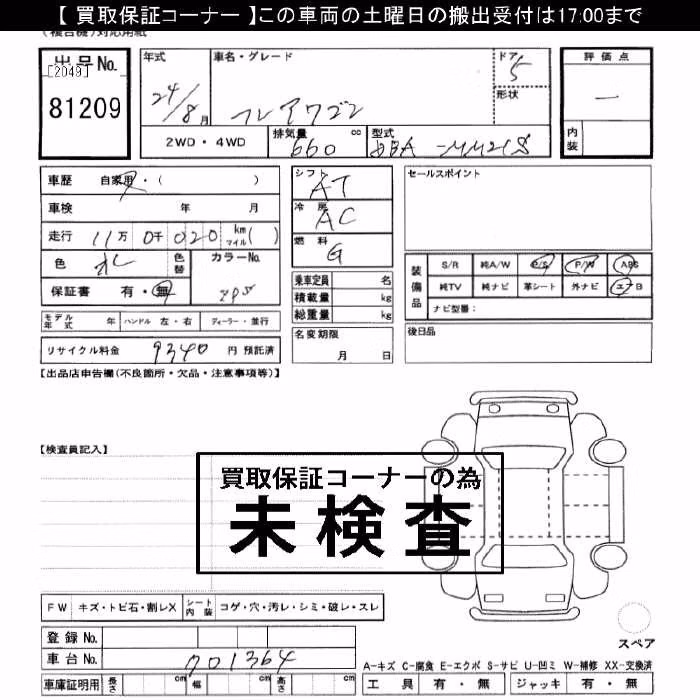 【 買取保証コーナー 】この車両の土曜日の搬出受付は17:00まで
(複合機)対応用紙
出品No.
[2049]
81209
年式
24/8月
車名・グレード
フレアワゴン
ドア
5
形状
評価点
—
内装
2WD・4WD
排気量
660 cc
型式
DBA-MM21S
車歴 自家用・( )
車検 年 月
走行 11万 0千 020 km マイル( )
色
色替
カラーNo.
ZPS
保証書 有・無
モデル年式 年 ハンドル 左・右 ディーラー・並行
リサイクル料金 9340 円 預託済
シフト
AT
冷房
AC
燃料
G
乗車定員 名
積載量 kg
総重量 kg
名変期限
月 日
セールスポイント
装備品
S/R 純A/W P/S P/W ABS
純TV 純ナビ 革シート 外ナビ エアB
ナビ型番:
後日品
【出品店申告欄(不良箇所・欠品・注意事項等)】
【検査員記入】
買取保証コーナーの為
未検査
FW キズ・トビ石・割レX シート内装 コゲ・穴・汚レ・シミ・破レ・スレ
登録No.
車台No. 701364
車庫証明用 長さ cm 幅 cm 高さ cm
スペア
A-キズ C-腐食 E-エクボ S-サビ U-凹ミ W-補修 XX-交換済
工具 有・無 ジャッキ 有・無